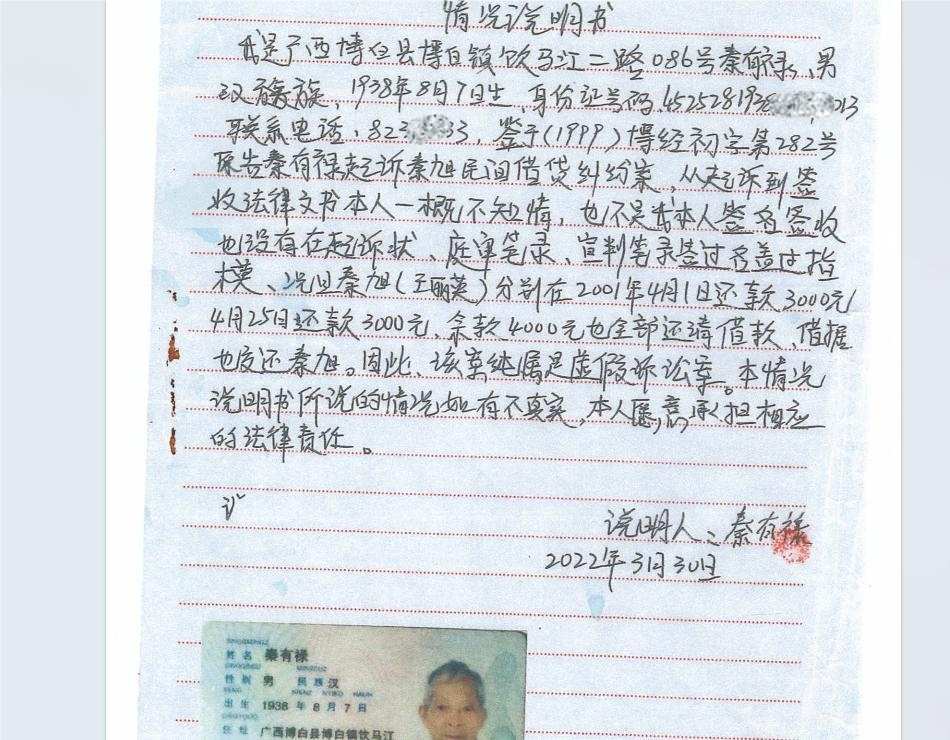 情况说明书
我是广西博白县博白镇饮马江二路086号秦有禄、男
汉族族，1938年8月7日生，身份证号码.452528193 013
联系电话：823 33，鉴于(1999)博经初字第282号
原告秦有禄起诉秦旭民间借贷纠纷案，从起诉到签
收法律文书本人一概不知情，也不是本人签名签收
也没有在起诉状、庭审笔录、宣判笔录签过名盖过指
模、况且秦旭(王丽英)分别在2001年4月1日还款3000元
4月25日还款3000元、余款4000元也全部还清借款、借据
也退还秦旭。因此、该案纯属是虚假诉讼案。本情况
说明书所说的情况如有不真实，本人愿意承担相应
的法律责任。
说明人：秦有禄
2022年3月30日
姓名 秦有禄
性别 男 民族 汉
出生 1938年8月7日
住址 广西博白县博白镇饮马江